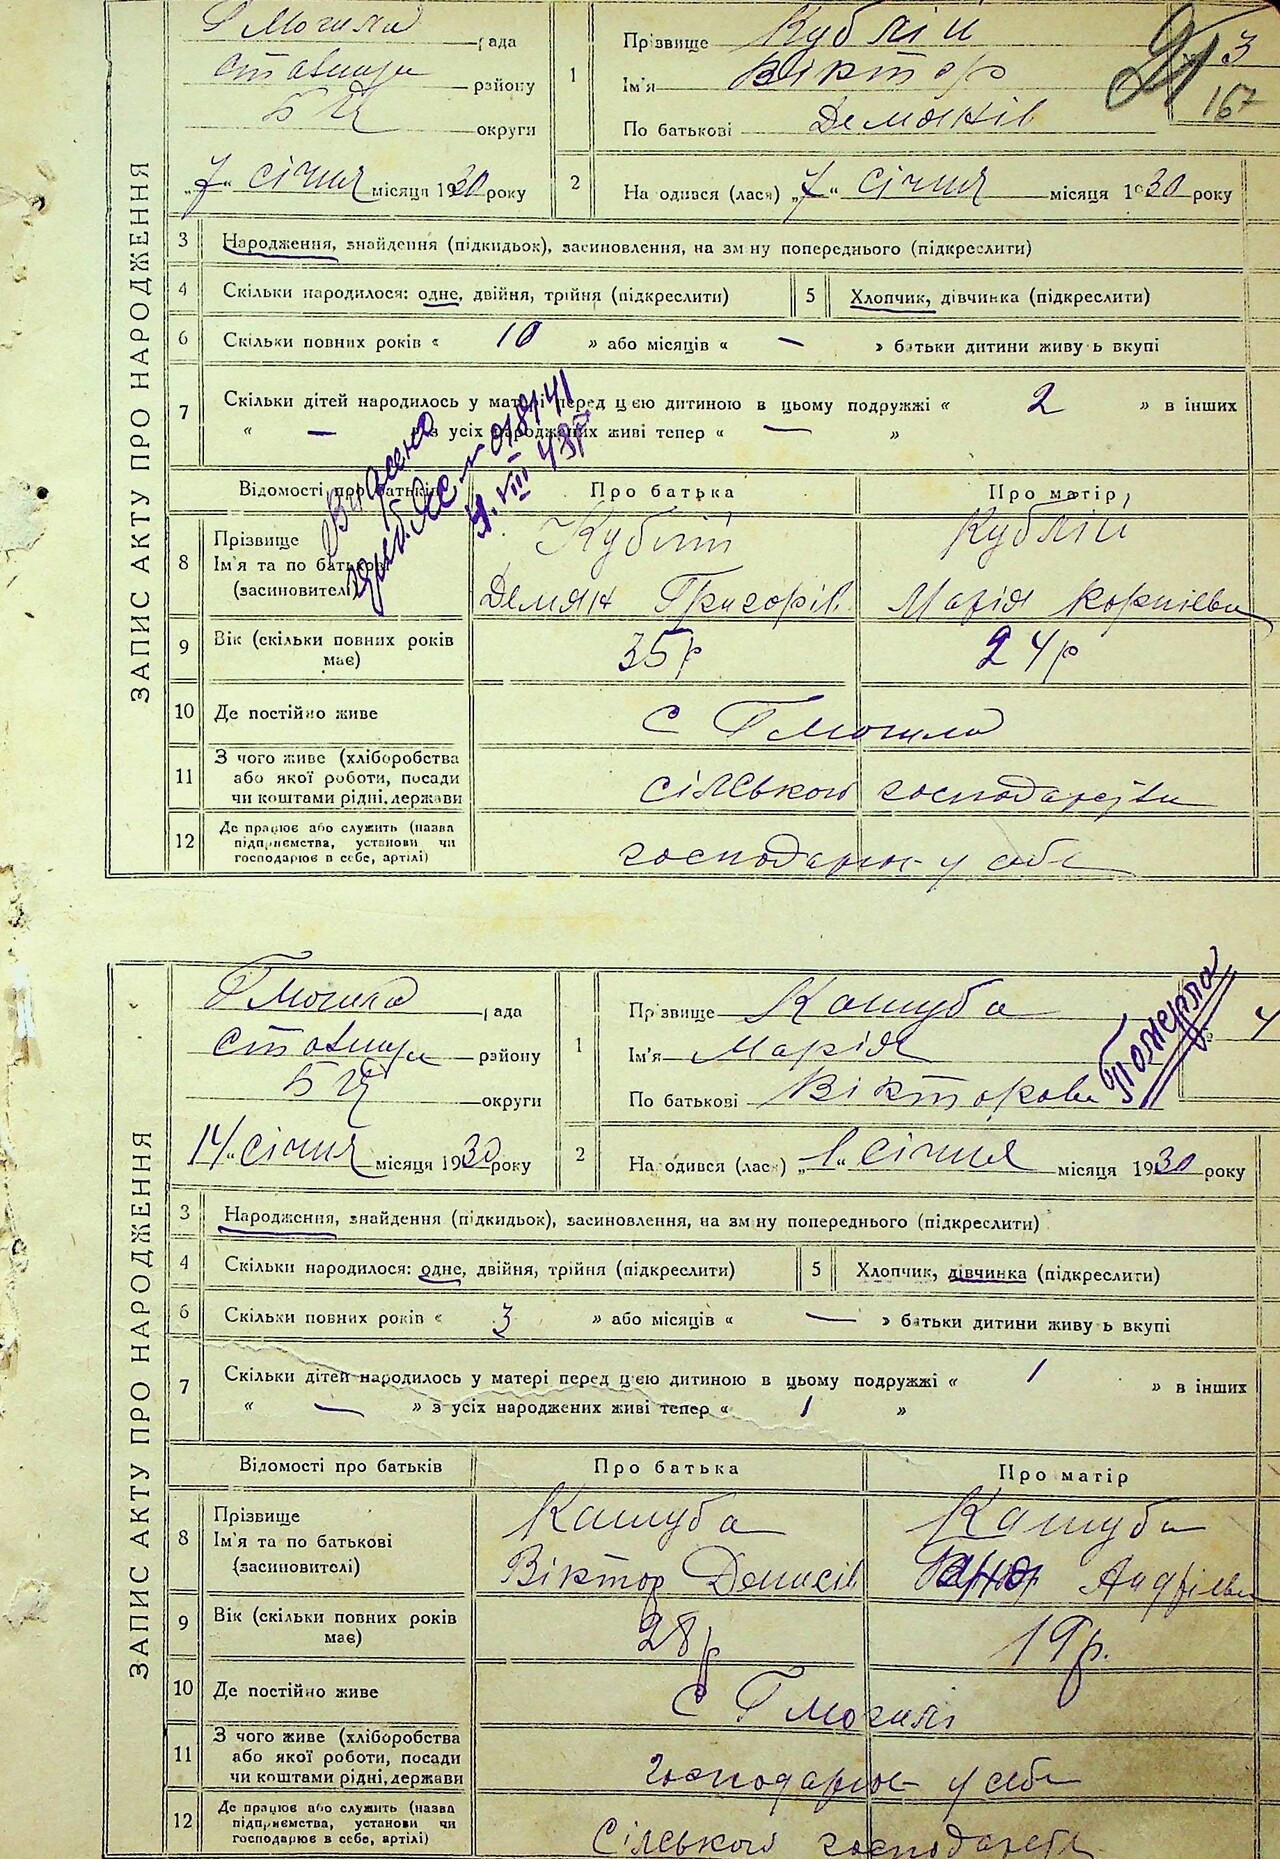 ЗАПИС АКТУ ПРО НАРОДЖЕННЯ
Г Могила рада
Ставищ району
БЦ округи
„7“ січня місяця 1930 року
1
Прізвище Кублій
Ім'я Віктор
По батькові Демянів
3
167
2
На одився (лася) „7“ січня місяця 1930 року
3 Народження, знайдення (підкидьок), засиновлення, на зм ну попереднього (підкреслити)
4 Скільки народилося: одне, двійня, трійня (підкреслити)
5 Хлопчик, дівчинка (підкреслити)
6 Скільки повних років « 10 » або місяців « — » батьки дитини живу ь вкупі
7 Скільки дітей народилось у матері перед цією дитиною в цьому подружжі « 2 » в інших
« — » з усіх народжених живі тепер « — »
Відомості про батьків
Про батька
Про матір
8 Прізвище
Ім'я та по батькові
(засиновителі)
Кублій
Демян Григорів
Кублій
Марія Корніева
9 Вік (скільки повних років має)
35 р
24 р
10 Де постійно живе
с Г Могила
11 З чого живе (хліборобства
або якої роботи, посади
чи коштами рідні, держави
сілського господарства
12 Де працює або служить (назва
підприємства, установи чи
господарює в себе, артілі)
господарює у себе
ЗАПИС АКТУ ПРО НАРОДЖЕННЯ
Г Могила рада
Ставищ району
БЦ округи
14“ січня місяця 1930 року
1
Пр звище Кашуба
Ім'я Марія
По батькові Вікторова
Померла
4
2
На одився (лася) „1“ січня місяця 1930 року
3 Народження, знайдення (підкидьок), засиновлення, на зм ну попереднього (підкреслити)
4 Скільки народилося: одне, двійня, трійня (підкреслити)
5 Хлопчик, дівчинка (підкреслити)
6 Скільки повних років « 3 » або місяців « — » батьки дитини живу ь вкупі
7 Скільки дітей народилось у матері перед цією дитиною в цьому подружжі « 1 » в інших
« — » з усіх народжених живі тепер « 1 »
Відомості про батьків
Про батька
Про матір
8 Прізвище
Ім'я та по батькові
(засиновителі)
Кашуба
Віктор Денисів
Кашуба
Андріева
9 Вік (скільки повних років має)
28 р
19 р.
10 Де постійно живе
с Г Могилі
11 З чого живе (хліборобства
або якої роботи, посади
чи коштами рідні, держави
господарює у себе
12 Де працює або служить (назва
підприємства, установи чи
господарює в себе, артілі)
Сілського господарств